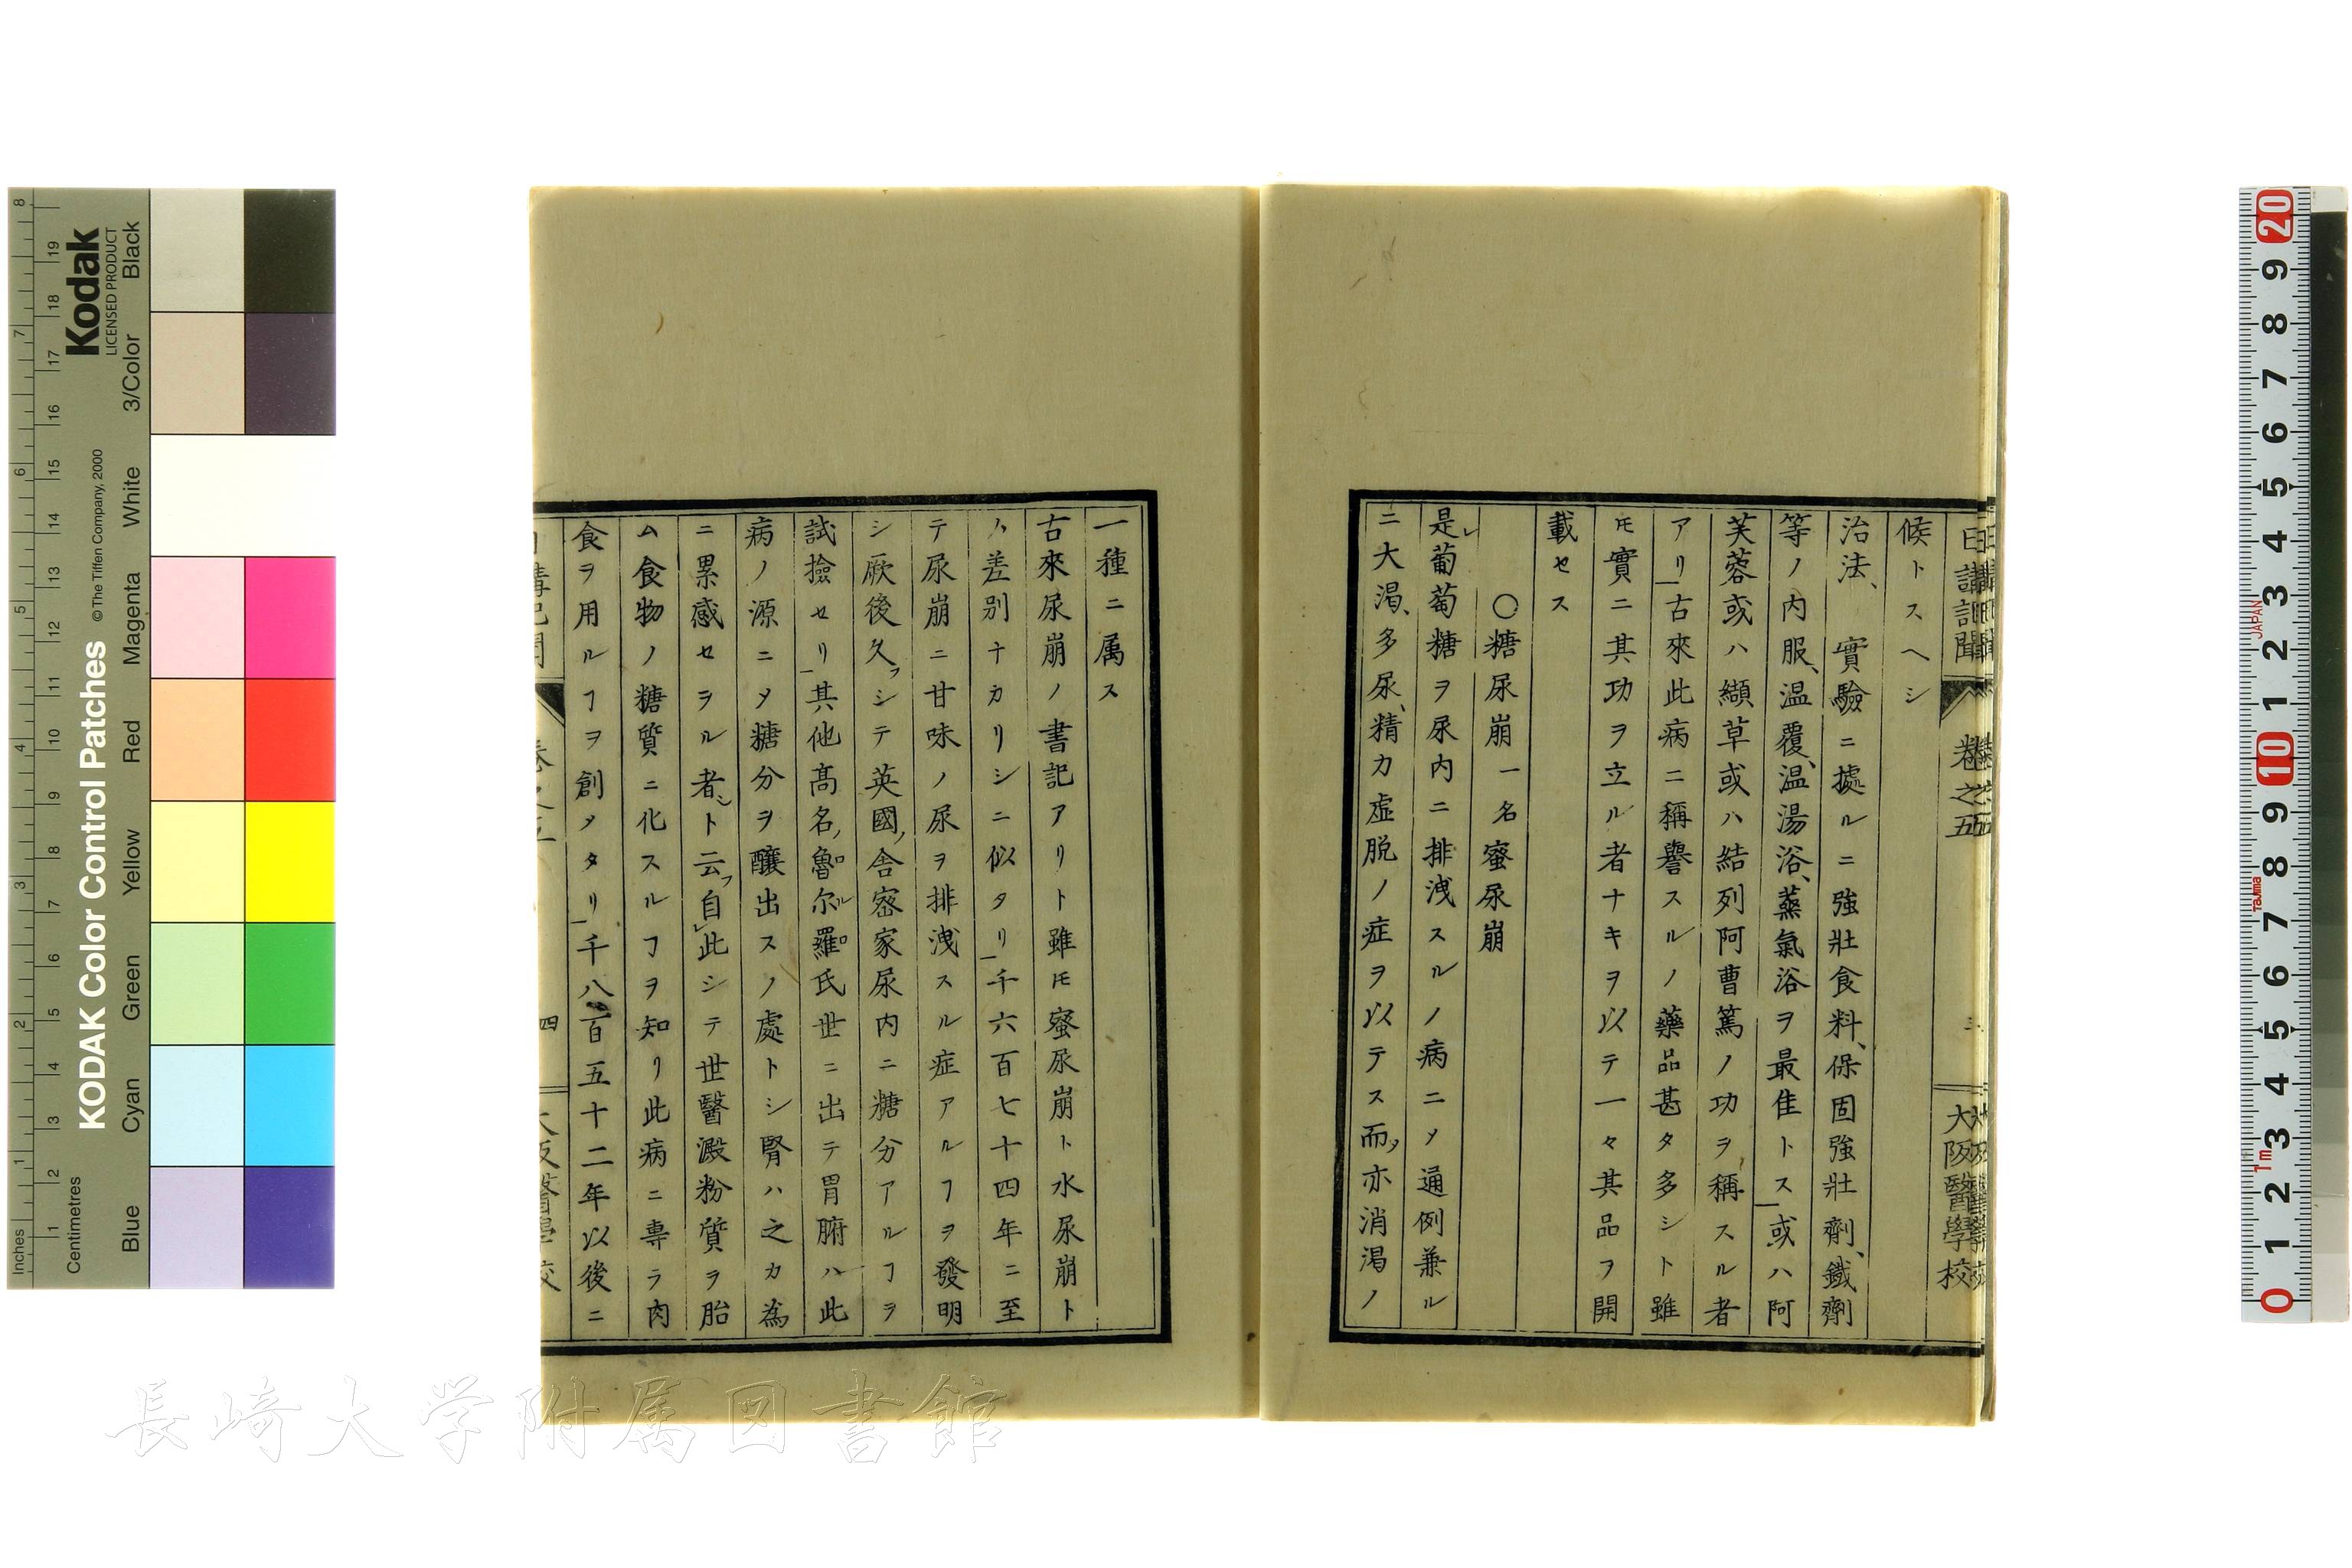 日講記聞 卷之五 三 大阪醫學校
候トスヘシ
治法、實驗ニ據ルニ強壯食料、保固強壯劑、鐵劑
等ノ内服、温覆、温湯浴、蒸氣浴ヲ最佳トス或ハ阿
芙蓉或ハ纈草或ハ結列阿曹篤ノ功ヲ稱スル者
アリ古來此病ニ稱譽スルノ藥品甚タ多シト雖
𪜈實ニ其功ヲ立ル者ナキヲ以テ一々其品ヲ開
載セス
○糖尿崩一名蜜尿崩
是レ葡萄糖ヲ尿内ニ排洩スルノ病ニメ通例兼ル
ニ大渇、多尿、精力虚脱ノ症ヲ以テス而メ亦消渇ノ
一種ニ属ス
古來尿崩ノ書記アリト雖𪜈蜜尿崩ト水尿崩ト
ハ差別ナカリシニ似タリ千六百七十四年ニ至
テ尿崩ニ甘味ノ尿ヲ排洩スル症アルヿヲ發明
シ厥後久フシテ英國ノ舎密家尿内ニ糖分アルヿヲ
試撿セリ其他髙名ノ魯ロ尓ル羅ロ氏世ニ出テ胃腑ハ此
病ノ源ニメ糖分ヲ釀出スノ處トシ腎ハ之カ為
ニ累感セヲル者シト云フ自レ此シテ世醫澱粉質ヲ胎
ム食物ノ糖質ニ化スルヿヲ知リ此病ニ専ラ肉
食ヲ用ルヿヲ創メタリ千八百五十二年以後ニ
四
長崎大学附属図書館
KODAK Color Control Patches
© The Tiffen Company, 2000
Kodak
LICENSED PRODUCT
Inches
Centimetres
Blue Cyan Green Yellow Red Magenta White 3/Color Black
20 9 8 7 6 5 4 3 2 1 10 9 8 7 6 5 4 3 2 1 0
JAPAN
Tajima
1m